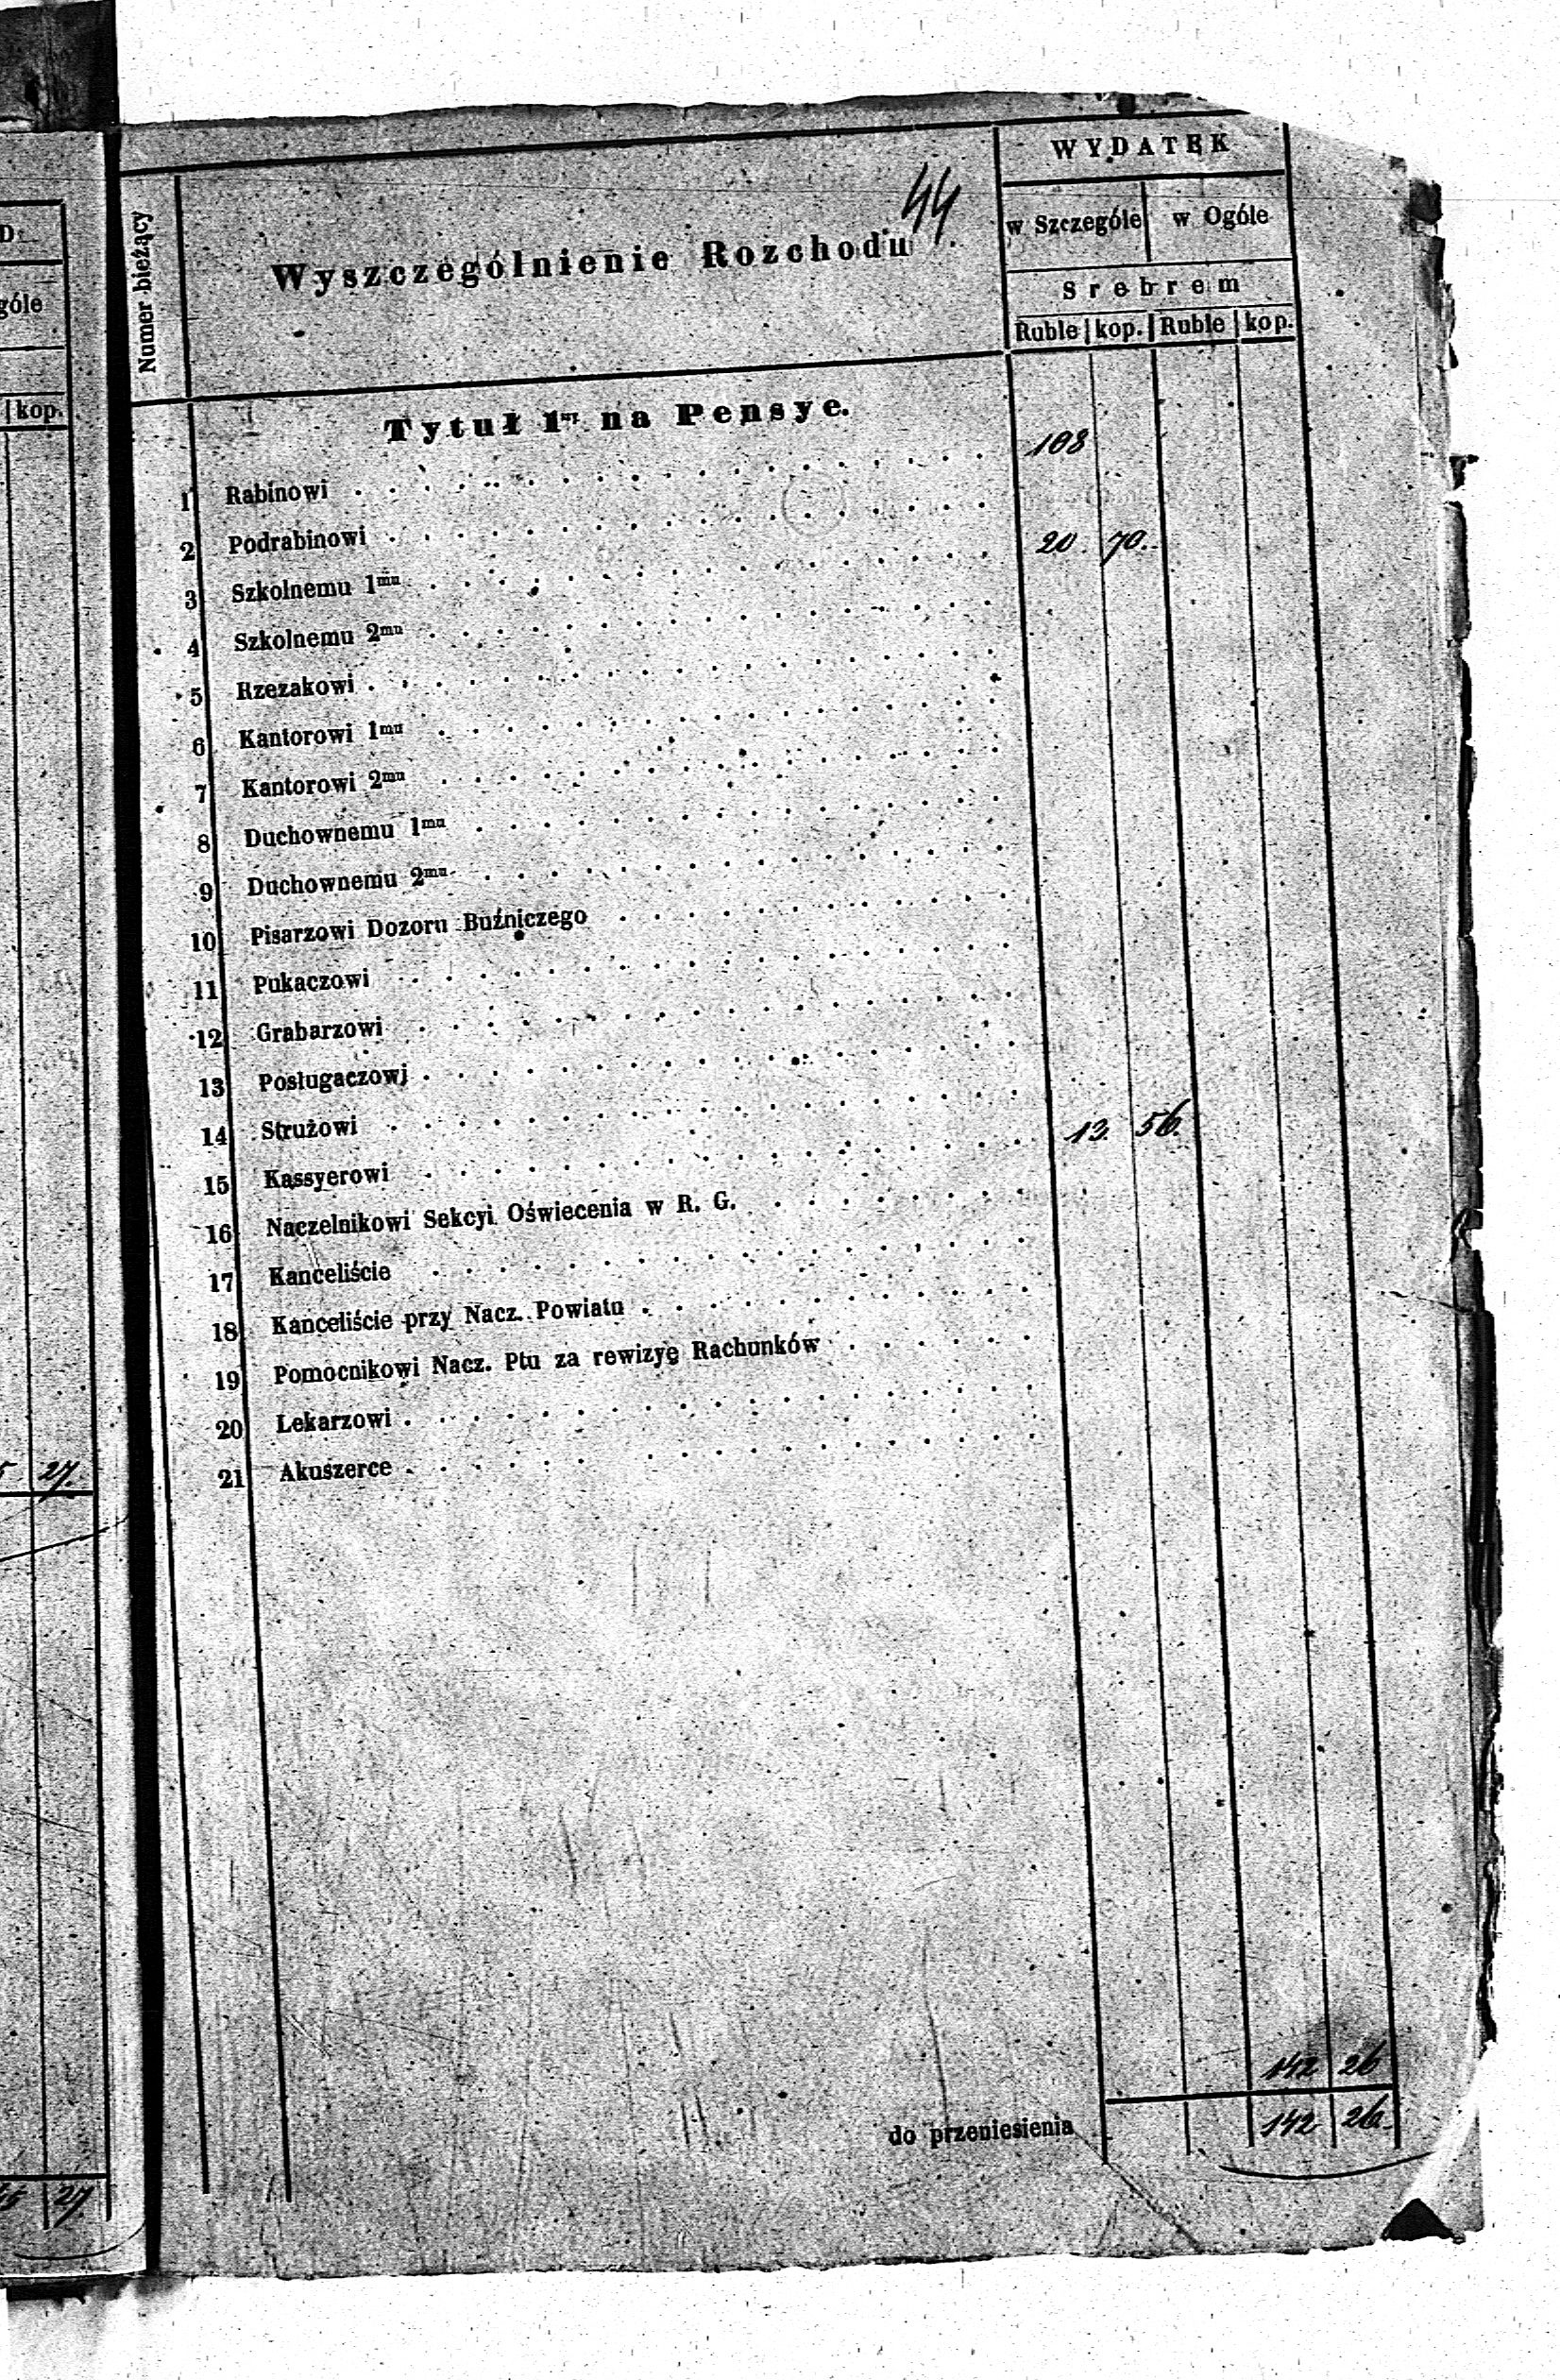 D
góle
kop.
27.
27.
44
WYDATEK
Numer bieżący
Wyszczególnienie Rozchodu
w Szczególe w Ogóle
Srebrem
Ruble kop. Ruble kop.
Tytuł 1szy na Pensye.
1 Rabinowi 108
2 Podrabinowi
3 Szkolnemu 1mu 20. 70.
4 Szkolnemu 2mu
5 Rzezakowi
6 Kantorowi 1mu
7 Kantorowi 2mu
8 Duchownemu 1mu
9 Duchownemu 2mu
10 Pisarzowi Dozoru Buźniczego
11 Pukaczowi
12 Grabarzowi
13 Posługaczowi
14 Strużowi
15 Kassyerowi 13. 56.
16 Naczelnikowi Sekcyi Oświecenia w R. G.
17 Kanceliście
18 Kanceliście przy Nacz. Powiatu
19 Pomocnikowi Nacz. Ptu za rewizyę Rachunków
20 Lekarzowi
21 Akuszerce
142 26
do przeniesienia 142 26.